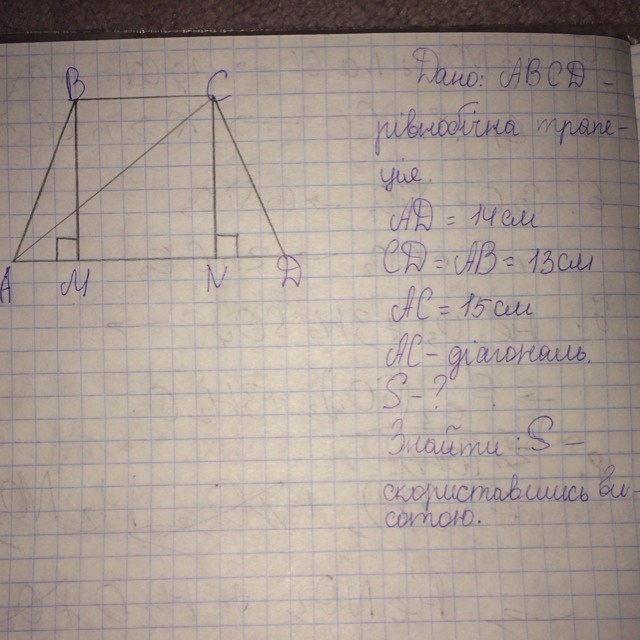 B C
A M N D
Дано: ABCD –
рівнобічна трапе-
ція.
AD = 14 см
CD = AB = 13 см
AC = 15 см
AC – діагональ.
S – ?
Знайти: S –
скориставшись ви-
сотою.